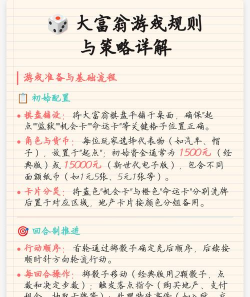 🎲 大富翁游戏规则
与策略详解
游戏准备与基础流程
📋 初始配置
• 棋盘铺设：将大富翁棋盘平铺于桌面，确保“起
点”“监狱”“机会卡”“命运卡”等关键格子位置正确。
• 角色与货币：每位玩家选择代表物（如汽车、帽
子），放置于“起点”；初始资金通常为1500元（经
典版）或15000元（新世代电子版），包含不同
面额纸币（如1元5张、5元1张等）。
• 卡片分类：将蓝色“机会卡”与橙色“命运卡”分别洗牌
后置于对应区域，地产卡片按颜色分组备用。
🎯 回合制推进
• 行动顺序：首轮通过掷骰子确定先后顺序，后续按
顺时针方向轮流行动。
• 每回合操作：掷骰子移动（经典版用2颗骰子，点
数和决定步数）；触发落点指令（购买地产、支付